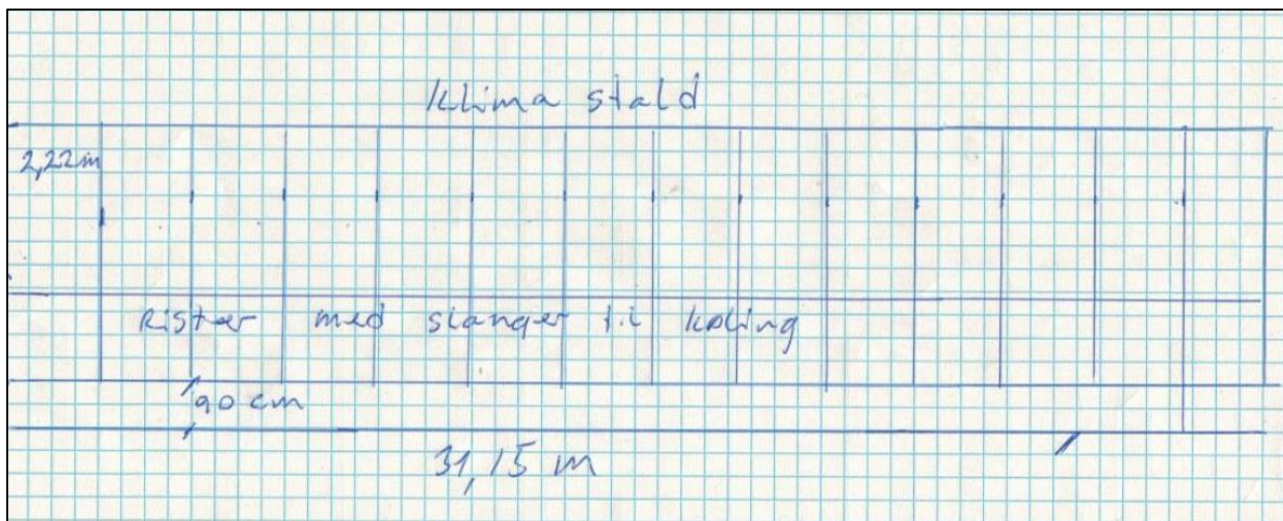 Klima stald
2,22m
Rister med slanger til køling
90 cm
31,15 m